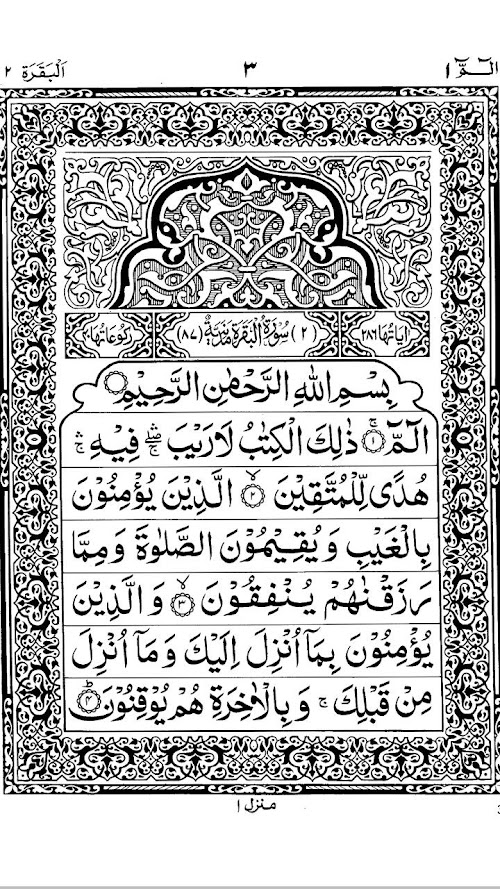 الٓمّٓ ١ ٣ اَلْبَقَرَة ٢
اٰيَاتُهَا ٢٨٦ (٢) سُوْرَةُ الْبَقَرَةِ مَدَنِيَّةٌ (٨٧) رُكُوْعَاتُهَا
بِسْمِ اللّٰهِ الرَّحْمٰنِ الرَّحِيْمِ
الٓمّٓ ۚ ١ ذٰلِكَ الْكِتٰبُ لَا رَيْبَ ۛۖ فِيْهِ ۛۚ
هُدًى لِّلْمُتَّقِيْنَ ۙ ٢ الَّذِيْنَ يُؤْمِنُوْنَ
بِالْغَيْبِ وَيُقِيْمُوْنَ الصَّلٰوةَ وَمِمَّا
رَزَقْنٰهُمْ يُنْفِقُوْنَ ۙ ٣ وَالَّذِيْنَ
يُؤْمِنُوْنَ بِمَآ اُنْزِلَ اِلَيْكَ وَمَآ اُنْزِلَ
مِنْ قَبْلِكَ ۚ وَبِالْاٰخِرَةِ هُمْ يُوْقِنُوْنَ ؕ ٤
منزل ١